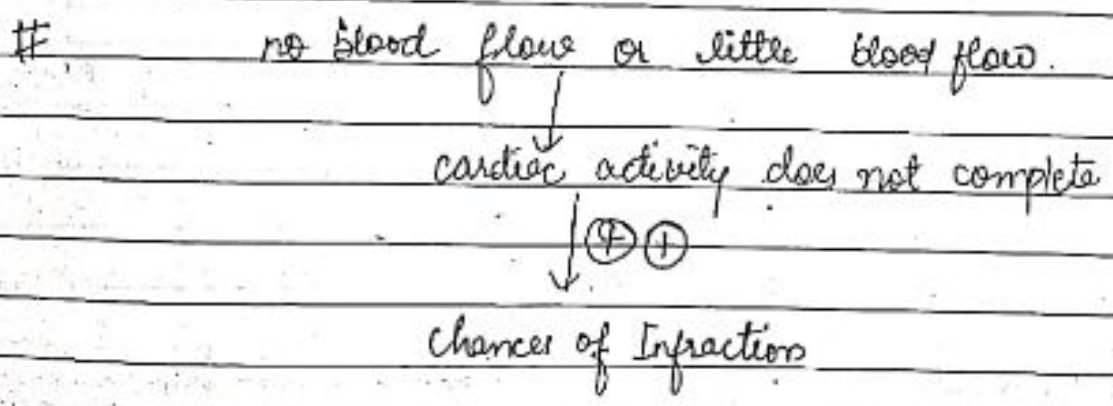 # no blood flow or little blood flow.
↓
cardiac activity does not complete
↓ ⊕ ⊕
Chances of Infraction